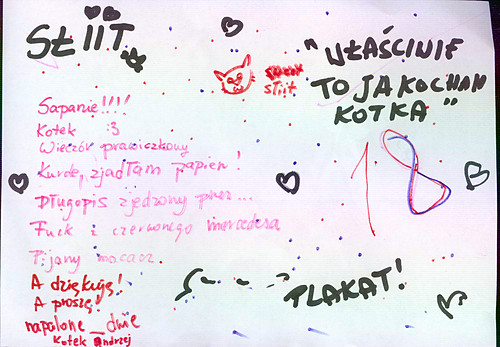 SŁIIT
" WŁAŚCINIE
TO JA KOCHAM
KOTKA "
słiit
Sapanie!!!!
Kotek :3
Wieczór prawiczkowy
Kurde, zjadłam papier!
Długopis zjedzony przez...
Fuck z czerwonego mercedesa
Pijany macacz.
18
A dziękuję!
A proszę!
napalone_dwie
Kotek andrzej
PLAKAT!